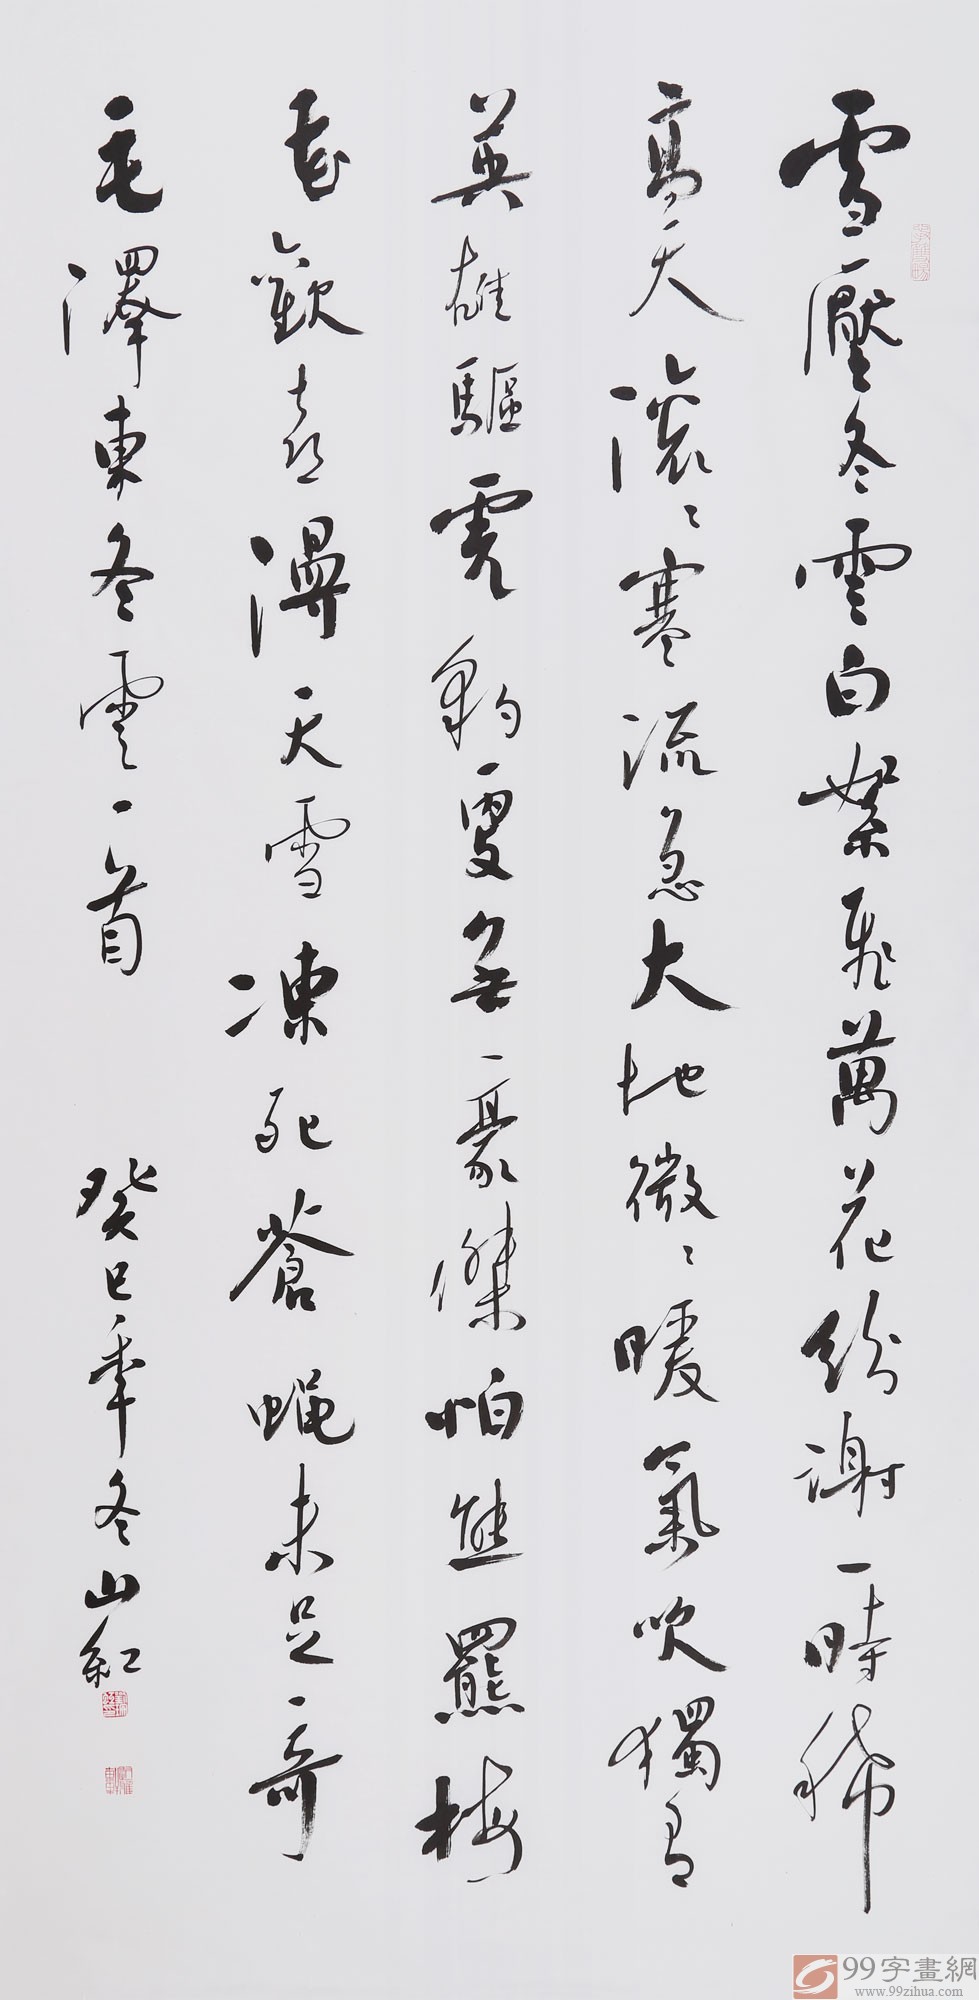 雪壓冬雲白絮飛萬花紛謝一時稀
高天滾〻寒流急大地微〻暖氣吹獨有
英雄驅虎豹更無豪傑怕熊羆梅
花歡喜漫天雪凍死蒼蝇未足奇
毛澤東冬雲一首 癸巳年冬山紅
99字畫網
www.99zihua.com